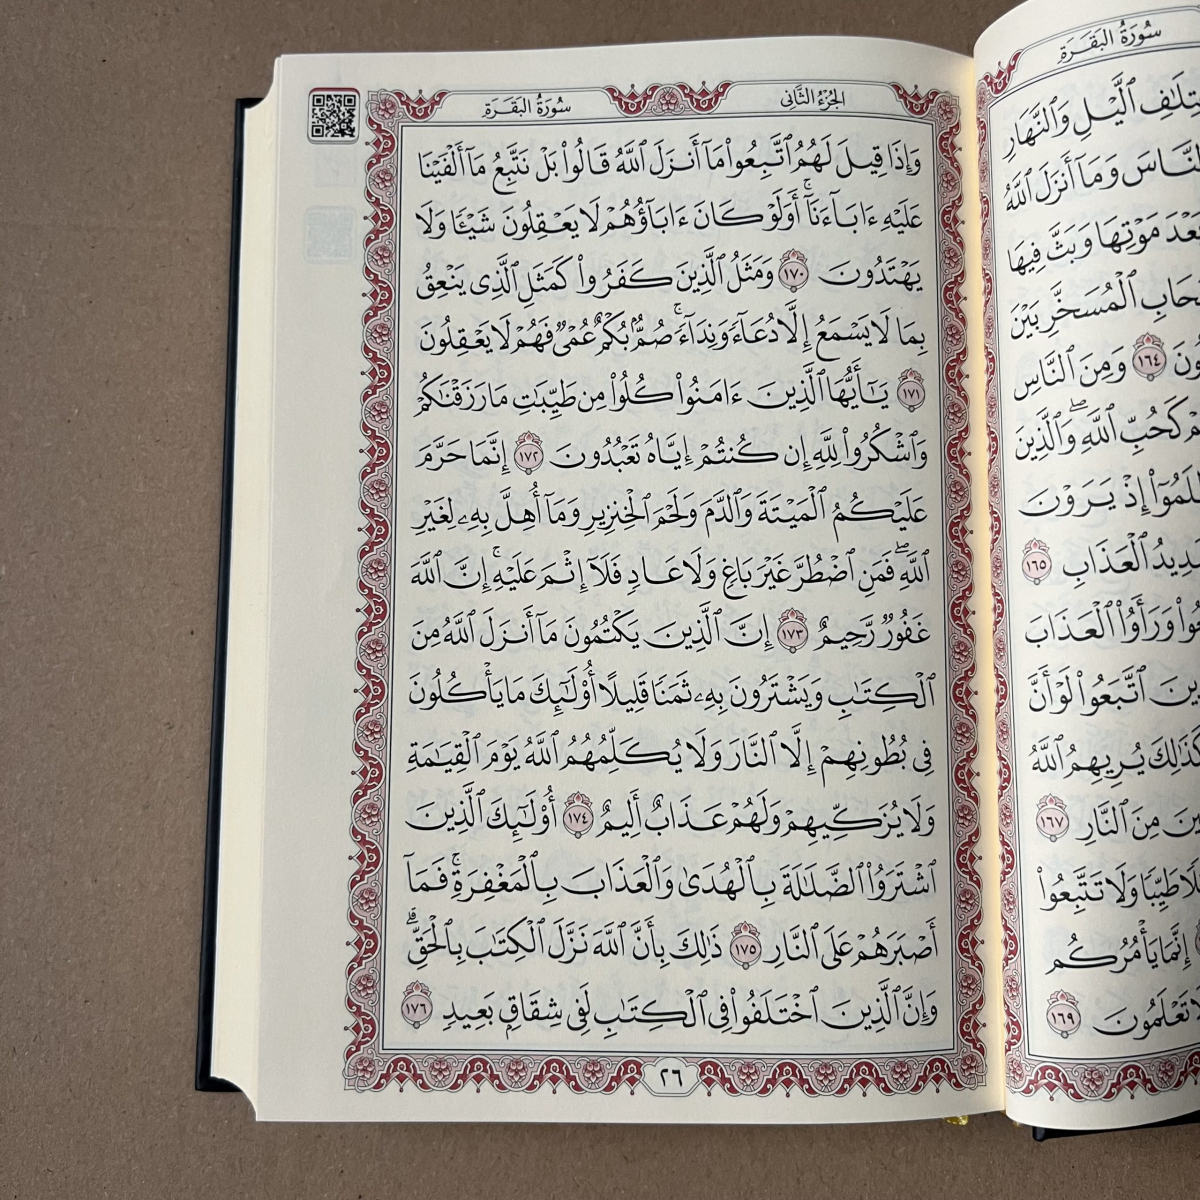 سُورَةُ البَقَرَةِ
تِلَٰفِ ٱلَّيۡلِ وَٱلنَّهَارِ
ٱلنَّاسَ وَمَآ أَنزَلَ ٱللَّهُ
بَعۡدَ مَوۡتِهَا وَبَثَّ فِيهَا
حَابِ ٱلۡمُسَخَّرِ بَيۡنَ
ونَ ١٦٤ وَمِنَ ٱلنَّاسِ
هُمۡ كَحُبِّ ٱللَّهِۖ وَٱلَّذِينَ
ظَلَمُوٓاْ إِذۡ يَرَوۡنَ
شَدِيدُ ٱلۡعَذَابِ ١٦٥
عُواْ وَرَأَوُاْ ٱلۡعَذَابَ
ذِينَ ٱتَّبَعُواْ لَوۡ أَنَّ
كَذَٰلِكَ يُرِيهِمُ ٱللَّهُ
ينَ مِنَ ٱلنَّارِ ١٦٧
لَٰلٗا طَيِّبٗا وَلَا تَتَّبِعُواْ
إِنَّمَا يَأۡمُرُكُم
لَا تَعۡلَمُونَ ١٦٩
الجُزْءُ الثَّانِي
سُورَةُ البَقَرَةِ
وَإِذَا قِيلَ لَهُمُ ٱتَّبِعُواْ مَآ أَنزَلَ ٱللَّهُ قَالُواْ بَلۡ نَتَّبِعُ مَآ أَلۡفَيۡنَا
عَلَيۡهِ ءَابَآءَنَآۚ أَوَلَوۡ كَانَ ءَابَآؤُهُمۡ لَا يَعۡقِلُونَ شَيۡـٔٗا وَلَا
يَهۡتَدُونَ ١٧٠ وَمَثَلُ ٱلَّذِينَ كَفَرُواْ كَمَثَلِ ٱلَّذِي يَنۡعِقُ
بِمَا لَا يَسۡمَعُ إِلَّا دُعَآءٗ وَنِدَآءٗۚ صُمُّۢ بُكۡمٌ عُمۡيٞ فَهُمۡ لَا يَعۡقِلُونَ
١٧١ يَٰٓأَيُّهَا ٱلَّذِينَ ءَامَنُواْ كُلُواْ مِن طَيِّبَٰتِ مَا رَزَقۡنَٰكُمۡ
وَٱشۡكُرُواْ لِلَّهِ إِن كُنتُمۡ إِيَّاهُ تَعۡبُدُونَ ١٧٢ إِنَّمَا حَرَّمَ
عَلَيۡكُمُ ٱلۡمَيۡتَةَ وَٱلدَّمَ وَلَحۡمَ ٱلۡخِنزِيرِ وَمَآ أُهِلَّ بِهِۦ لِغَيۡرِ
ٱللَّهِۖ فَمَنِ ٱضۡطُرَّ غَيۡرَ بَاغٖ وَلَا عَادٖ فَلَآ إِثۡمَ عَلَيۡهِۚ إِنَّ ٱللَّهَ
غَفُورٞ رَّحِيمٌ ١٧٣ إِنَّ ٱلَّذِينَ يَكۡتُمُونَ مَآ أَنزَلَ ٱللَّهُ مِنَ
ٱلۡكِتَٰبِ وَيَشۡتَرُونَ بِهِۦ ثَمَنٗا قَلِيلًا أُوْلَٰٓئِكَ مَا يَأۡكُلُونَ
فِي بُطُونِهِمۡ إِلَّا ٱلنَّارَ وَلَا يُكَلِّمُهُمُ ٱللَّهُ يَوۡمَ ٱلۡقِيَٰمَةِ
وَلَا يُزَكِّيهِمۡ وَلَهُمۡ عَذَابٌ أَلِيمٌ ١٧٤ أُوْلَٰٓئِكَ ٱلَّذِينَ
ٱشۡتَرَوُاْ ٱلضَّلَٰلَةَ بِٱلۡهُدَىٰ وَٱلۡعَذَابَ بِٱلۡمَغۡفِرَةِۚ فَمَآ
أَصۡبَرَهُمۡ عَلَى ٱلنَّارِ ١٧٥ ذَٰلِكَ بِأَنَّ ٱللَّهَ نَزَّلَ ٱلۡكِتَٰبَ بِٱلۡحَقِّۗ
وَإِنَّ ٱلَّذِينَ ٱخۡتَلَفُواْ فِي ٱلۡكِتَٰبِ لَفِي شِقَاقِۭ بَعِيدٖ ١٧٦
٢٦